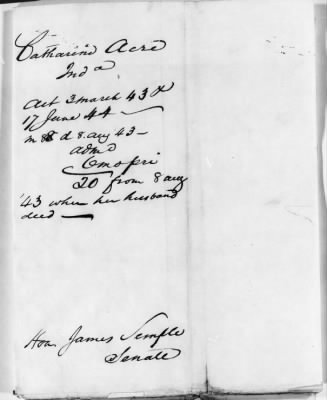 Catharine Acre
Ind a
Act 3 march 43 &
17 June 44 —
m d 8 aug 43 —
adm d
20 from 8 aug
'43 when her husband
died —
Hon. James Semple
Senate